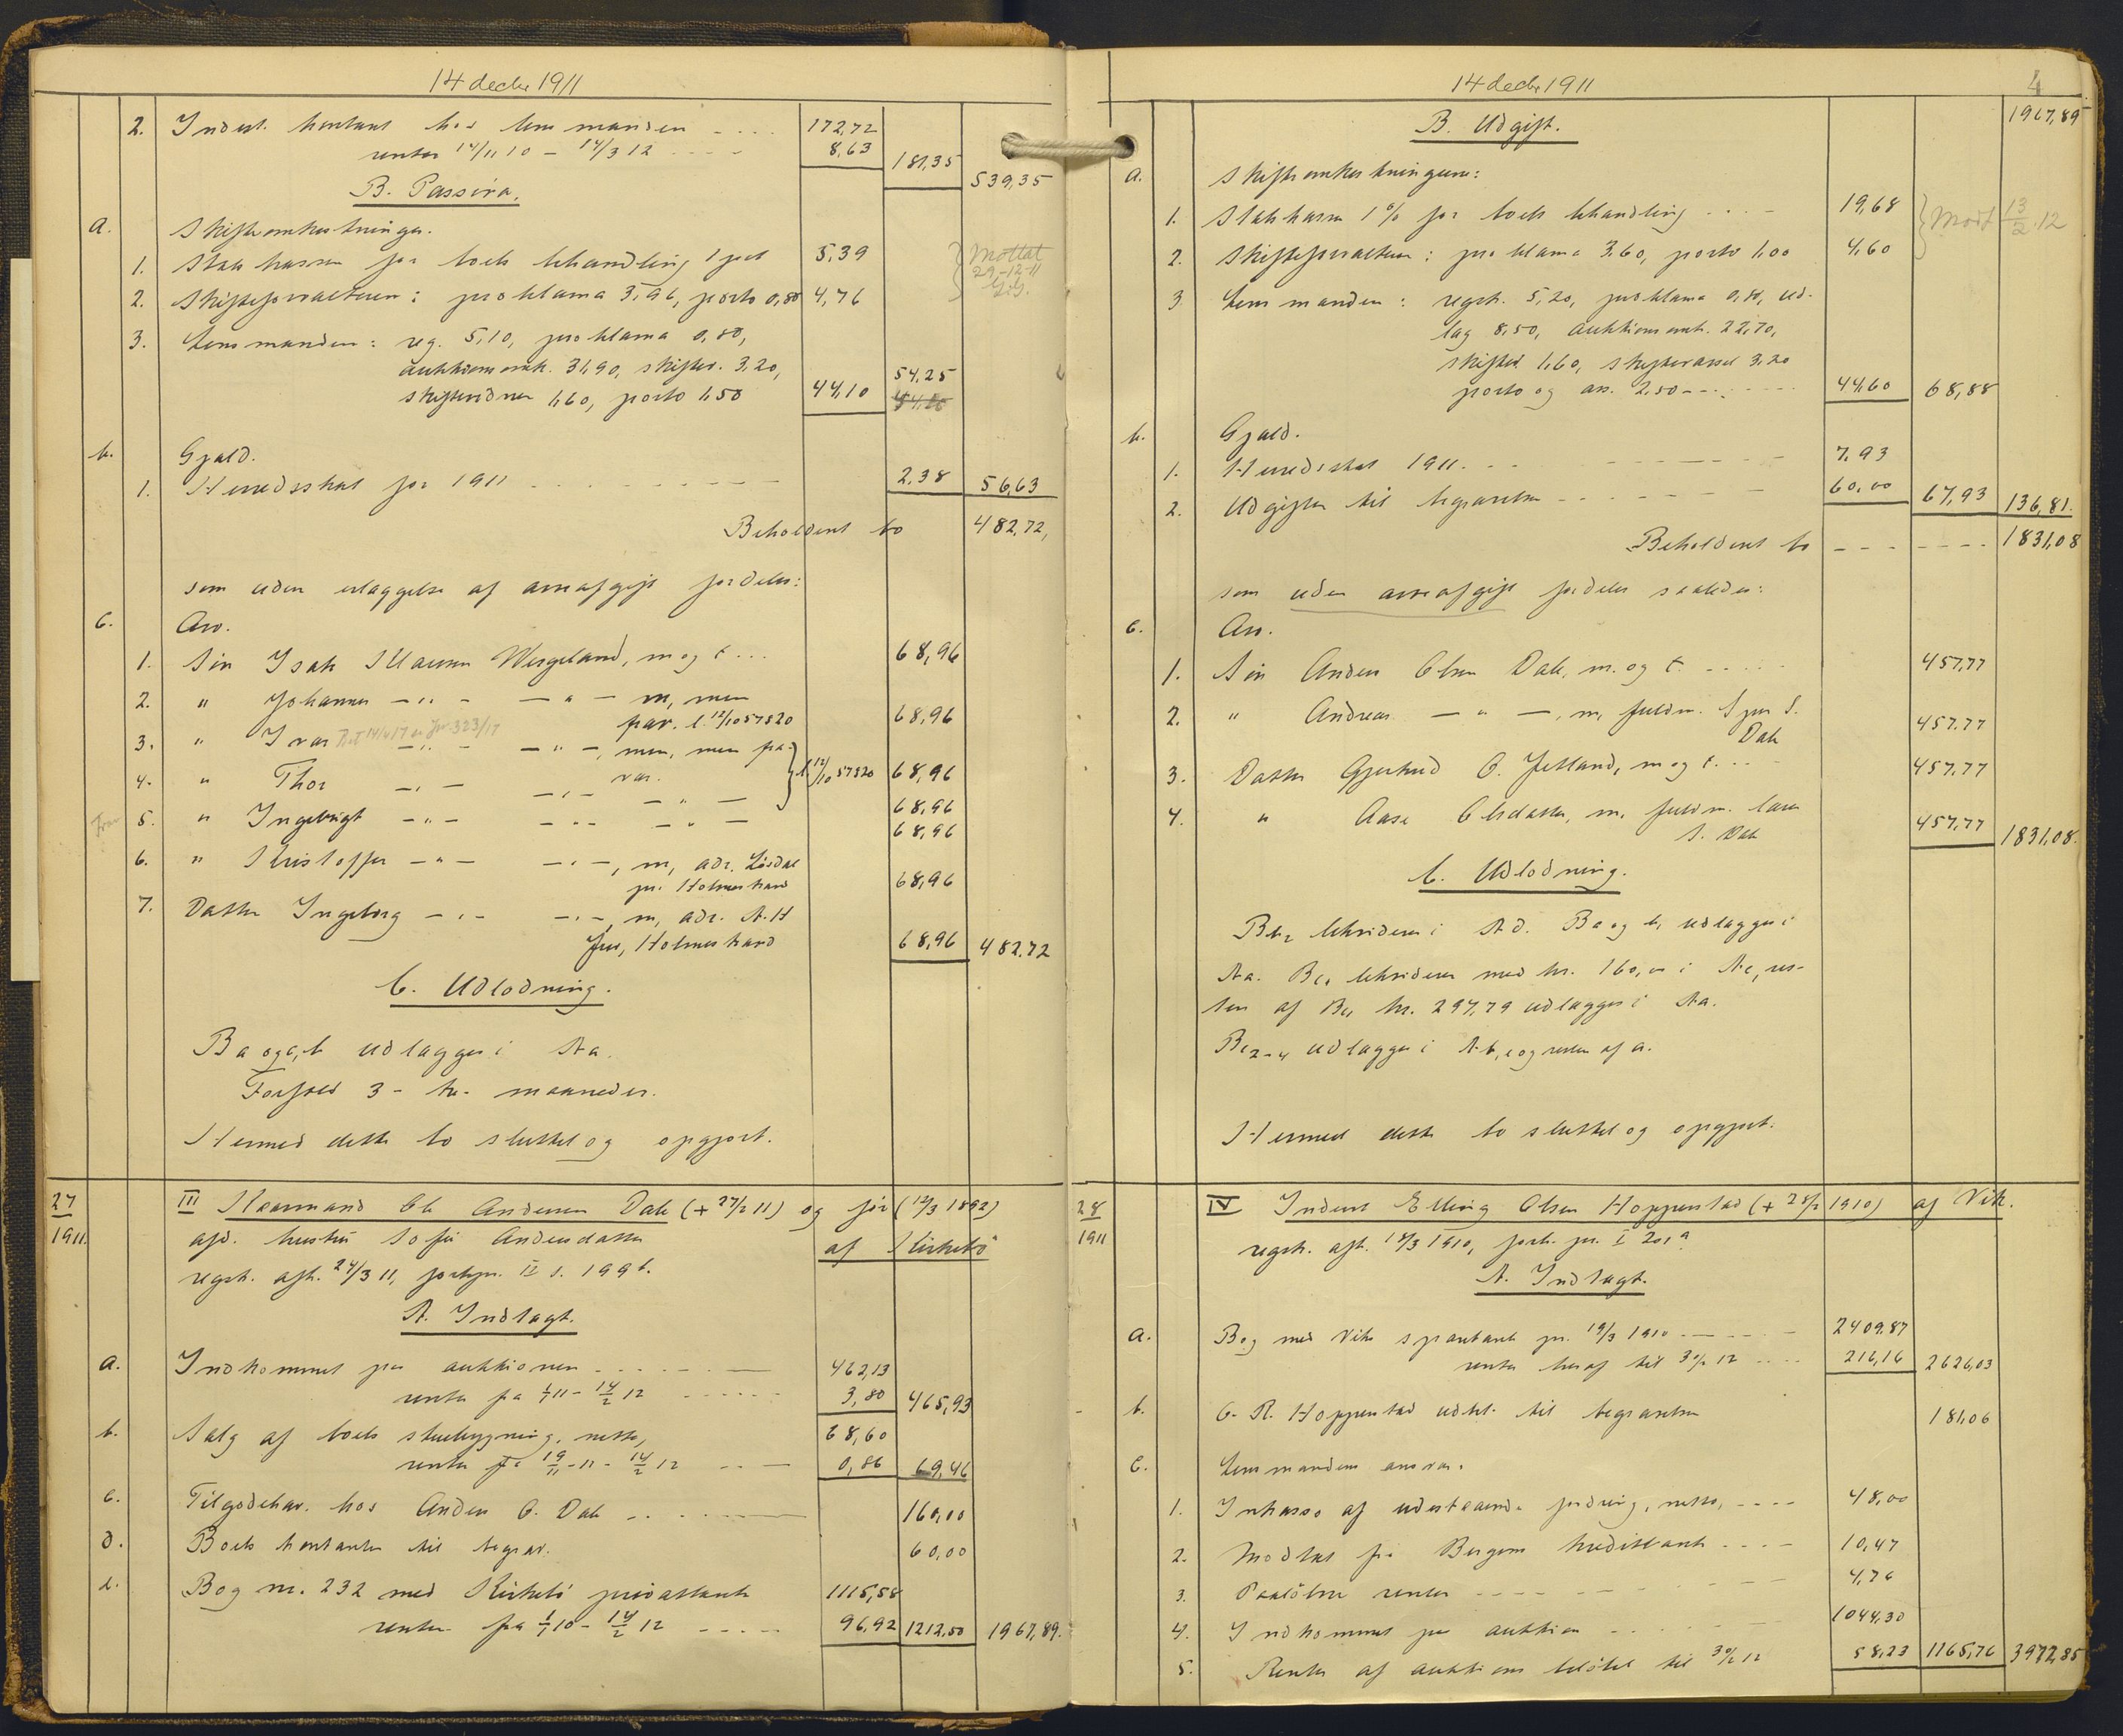 14 decbr 1911
2. Indest. kontant hos lensmanden - - - - 172,72
renter 14/11 10 – 14/3 12 - - - - 8,63 181,35 539,35
B. Passiva.
a. Skifteomkostninger.
1. Statskassen for boets behandling 1 pct 5,39
2. Skifteforvalteren: proklama 3,96, porto 0,80 4,76
Mottat 29-12-11
3. Lensmanden: reg. 5,10, proklama 0,80,
auktionsomk. 31,90, skiftev. 3,20, 54,25
skiftevidner 1,60, porto 1,50 44,10
b. Gjæld.
1. Herredsskat for 1911 - - - - 2,38 56,63
Beholdent bo 482,72,
som uden erlæggelse af arveafgift fordeles:
c. Arv.
1. Søn Isak Iversen Wergeland, m og t - - - 68,96
2. " Johannes — " — — " — m, men
par. l. 12/10 57520 68,96
3. " Ivar — " — — " —, mm, men fra-
4. " Thor vær. l. 12/10 57520 68,96
68,96
5. " Ingebrigt — " — — " — — " — 68,96
6. " Kristoffer — " — — " —, m, adr. Lösdal
pr. Holmestrand 68,96
7. Datter Ingeborg — " — — " —, m, adr. A. H
Holmestrand 68,96 482,72
C. Udlodning.
Ba og c, b udlægges i Aa.
Forfald 3 - tre - maaneder.
Hermed dette bo sluttet og opgjort.
27/1911. III Kaarmand Ole Andersen Dale (+ 27/2 11) og før (12/3 1892)
afd. hustru Sofie Andersdatter af Kirkebø
regstr. afh. 24/3 11, forhpr. II s. 199 b.
A. Indtægt.
a. Indkommet paa auktionen - - - - 462,13
renter fra 1/1 11 – 14/2 12 - - - - 3,80 465,93
b. Salg af boets stuebygning, netto, 68,60
renter fra 19/11 - 11 - 14/2 12 - - - 0,86 69,46
c. Tilgodehav. hos Anders O. Dale - - - - 160,00
d. Boets kontanter til begrav. 60,00
e. Bog nr. 232 med Kirkebø privatbank 1115,58
renter fra 1/1 10 – 14/2 12 - - - - 96,92 1212,50 1967,89.
14 decbr 1911
4
B. Udgift. 1967,89
a. Skifteomkostningerne:
1. Statskassen 1 % for boets behandling - - - - 19,68
Modt 13/2.12
2. Skifteforvalteren: proklama 3,60, porto 1,00 4,60
3. Lensmanden: regstr. 5,20, proklama 0,80, ud-
læg 8,50, auktionsomk. 22,70,
skiftev. 1,60, 3,20
porto og an. 2,50 - - - - 44,60 68,88
b. Gjæld.
1. Herredsskat 1911. - - - - 7,93
2. Udgifter til begravelsen - - - - 60,00 67,93 136,81.
Beholdent bo - - - - 1831,08
som uden arveafgift fordeles saaledes:
c. Arv.
1. Søn Anders Olsen Dale, m. og t - - - - 457,77
2. " Andreas — " —, m, fuldm. Sjur S.
Dale 457,77
3. Datter Gjertrud O. Jetland, m og t. - - 457,77
4. " Aase Olsdatter, m, fuldm. Lars
S. Dale 457,77 1831,08.
C. Udlodning.
Bb2 bekvideres i Ad. Ba og b1 udlægges i
Aa. Bc1 bekvideres med kr. 160,00 i Ac, res-
ten af Bc1 kr. 297,79 udlægges i Aa.
Bc2-4 udlægges i Ab, e og resten af a.
Hermed dette bo sluttet og opgjort.
28/1911 IV Inderst Elling Olsen Hopperstad (+ 28/2 1910) af Vik.
regstr. afh. 18/3 1910, forh. pr. I 201 a
A. Indtægt.
a. Bog med Viks sparebank pr. 19/3 1910 - - - - 2409,87
renter heraf til 30/2 12 - - - - 216,16 2626,03
b. O. R. Hopperstad udbet. til begravelsen 181,06
c. Lensmandens ansvar.
1. Inkasso af udestaaende fordring, netto, - - - - 48,00
2. Modtat fra Bergens kreditbank - - - - 10,47
3. Paaløbne renter - - - - 4,76
4. Indkommet paa auktion - - - - 1044,30
5. Renter af auktionsbeløbet til 30/2 12 58,23 1165,76 3972,85